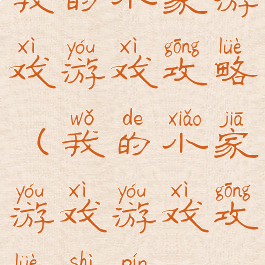 我的小家游
xì yóu xì gōng lüè
戏游戏攻略
wǒ de xiǎo jiā
（我的小家
yóu xì yóu xì gōng
游戏游戏攻
lüè shì pín